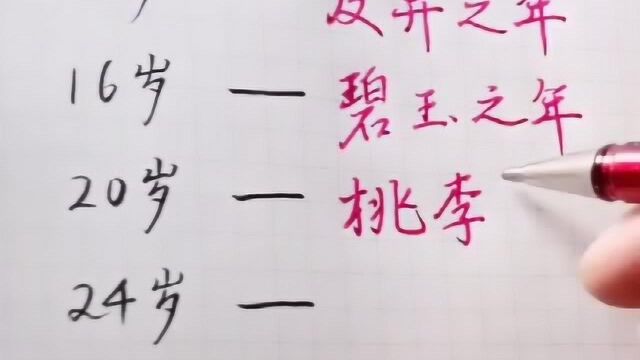 及笄之年
16岁 — 碧玉之年
20岁 — 桃李
24岁 —